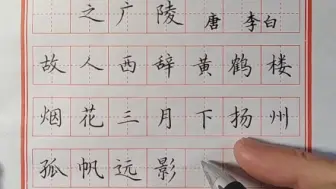 之广陵 唐 李白
故人西辞黄鹤楼
烟花三月下扬州
孤帆远影